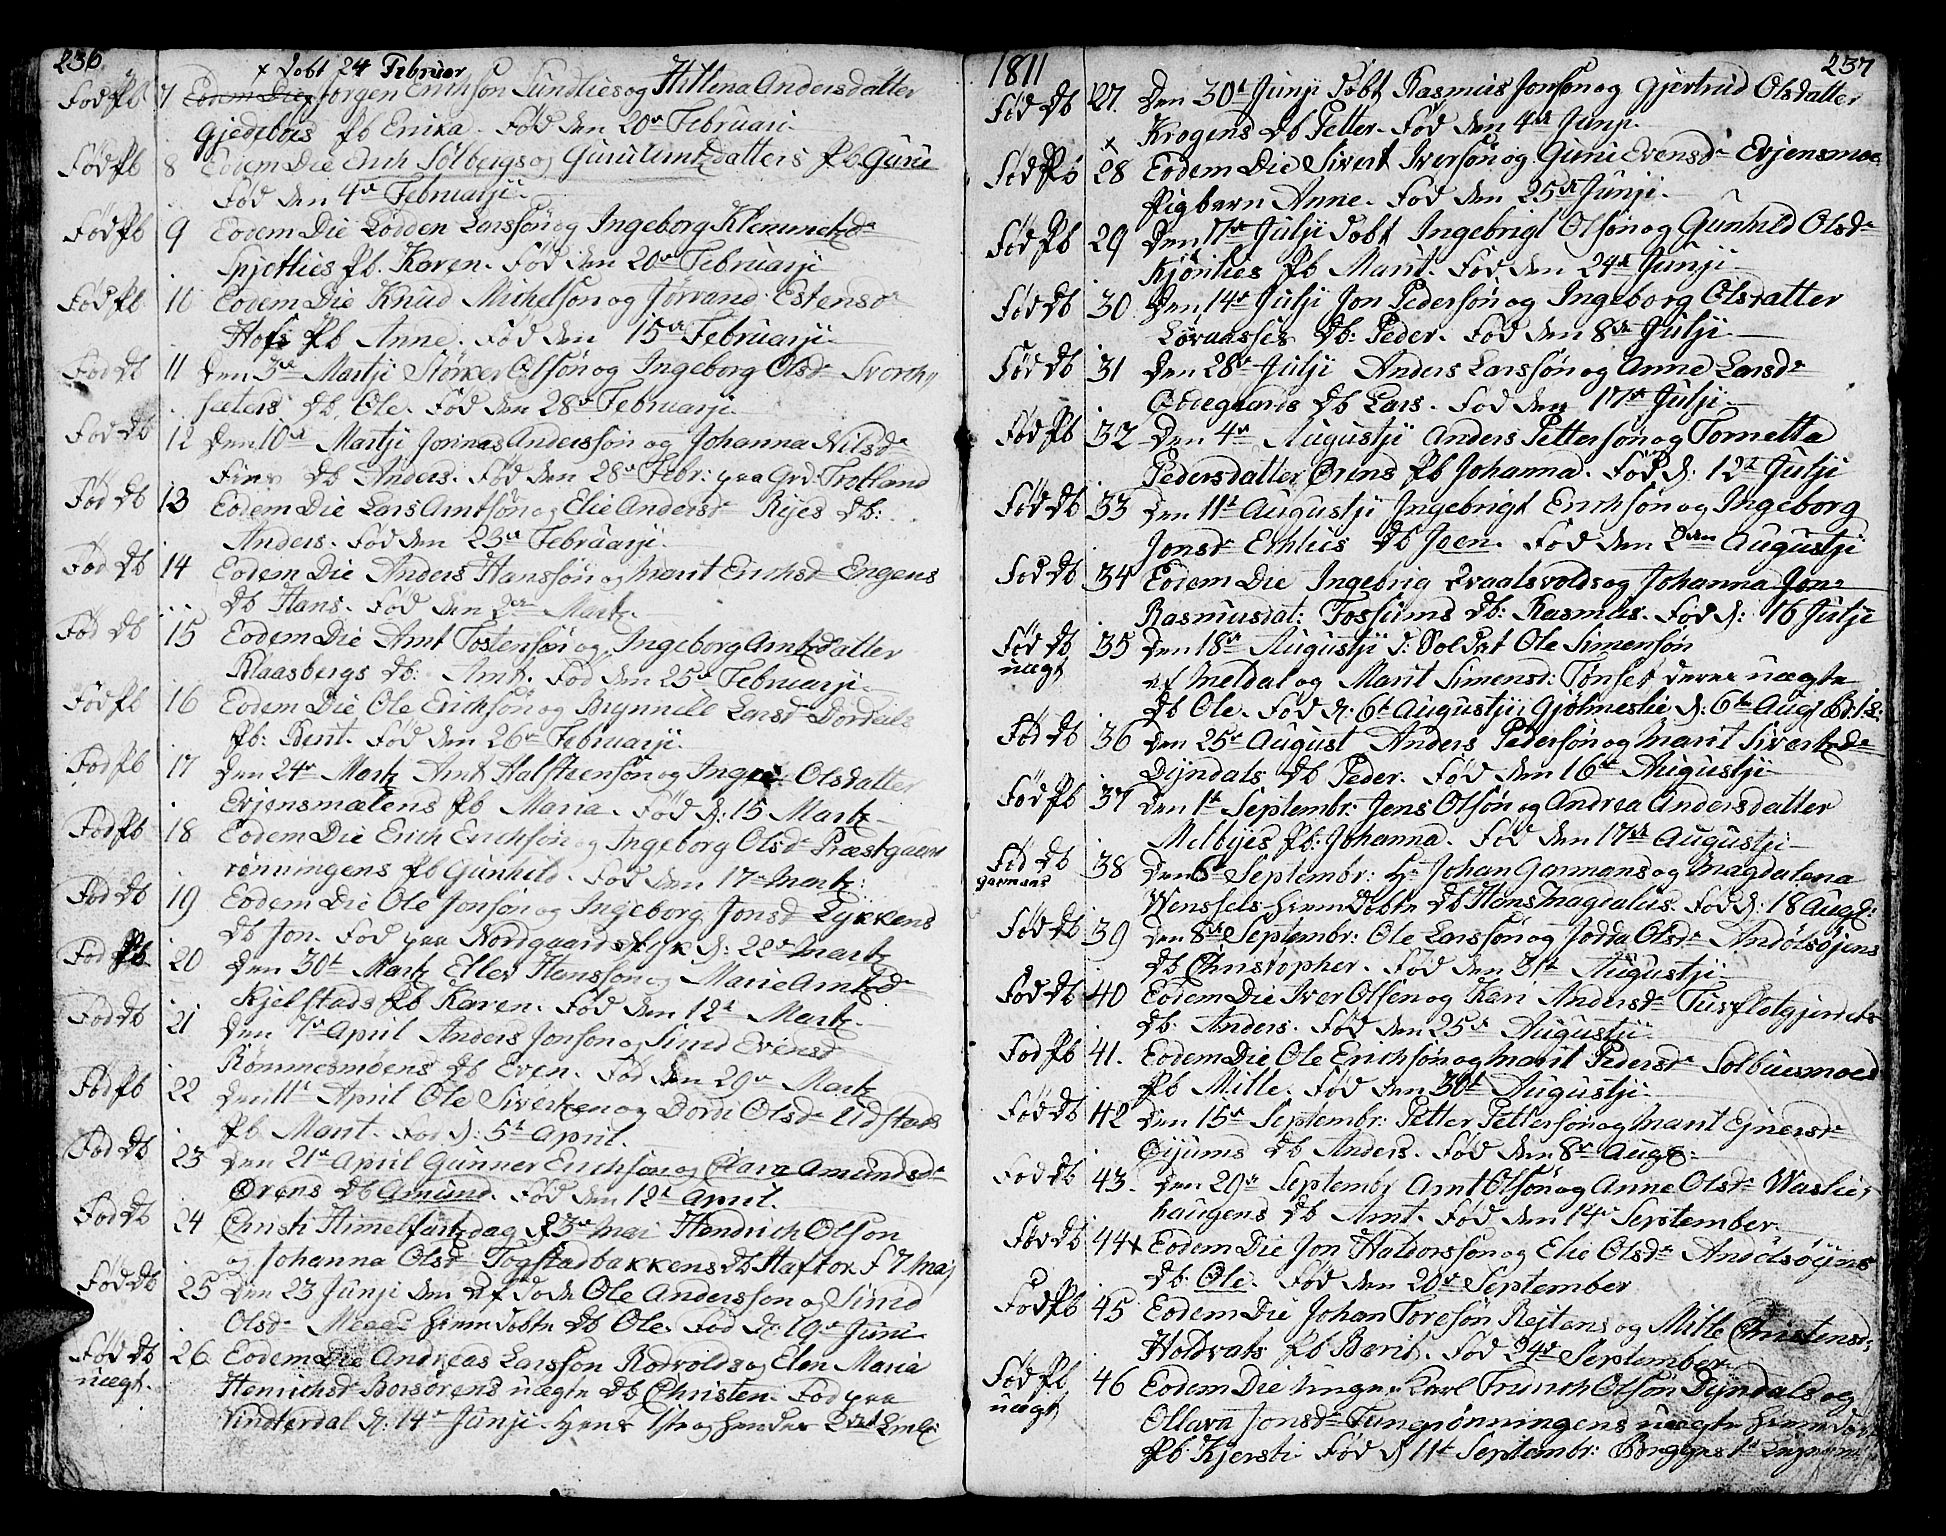 236
x Døbt 24 Februar
Fød Pb 7 Eodem Die Jørgen Erichsøn Sundlies og Hellena Andersdatter
Gjedebøes Pb Erika. Fød den 20de Februari
Fød Pb 8 Eodem Die Erich Sølbergs og Guru Arntzdatters Pb Guru
Fød den 4de Februarji
Fød Pb 9 Eodem Die Lodden Larssøn og Ingeborg Klemmetzdr
Spjøtlies Pb. Karen. Fød den 20de Februarji
Fød Pb 10 Eodem Die Knud Michelsøn og Jørvand Estensdr
Hofs Pb Anne. Fød den 15de Februarji
Fød Db 11 Den 3de Martji Størker Olsøn og Ingeborg Olsdr Svorthy
sæters Db. Ole. Fød den 28de Februarji
Fød Db 12 Den 10de Martji Jonnas Anderssøn og Johanna Nilsdr
Db Anders. Fød den 28de Febr: paa Grd. Trotland
Fød Db 13 Eodem Die Lars Arntsøn og Elie Andersdr Ryes Db:
Anders. Fød den 23de Februarji
Fød Db 14 Eodem Die Anders Hanssøn og Marit Erichsdr Engens
Db Hans. Fød den 2den Martz
Fød Db 15 Eodem Die Arnt Tostensøn og Ingeborg Arntzdatter
Klaasbergs Db: Arnt. Fød den 25de Februarji
Fød Pb 16 Eodem Die Ole Erichsøn og Brynnild Larsdr Dordals
Pb: Berit. Fød den 26de Februarji
Fød Pb 17 Den 24de Martz Arnt Halsteensøn og Inger Olsdatter
Evjensmælens Pb Maria. Fød d: 15 Martz
Fød Pb 18 Eodem Die Erich Erichsøn og Ingeborg Olsdr Præstgaards
rønningens Pb Gunhild. Fød den 17de Martz:
Fød Db 19 Eodem Die Ole Jonsøn og Ingeborg Jonsdr Lykkens
Db Jon. Fød paa Nordgaards d: 22de Martz
Fød Pb 20 Den 30te Martz Ellev Hanssøn og Marie Arntzdr
Kjelstads Pb Karen. Fød den 12te Martz.
Fød Db 21 Den 7de April Anders Jonsøn og Sirid Evensdr
Rømmesmoens Db Even. Fød den 29de Martz
Fød Pb 22 Den 11te April Ole Sivertzen og Dordi Olsdr Udstads
Pb Marit. Fød d: 5te April.
Fød Db 23 Den 21de April Gunner Erichsøn og Clara Amundsdr
Ørens Db Amund. Fød den 12te April.
Fød Db 24 Christi Himelfartzdag 23de Mai Hendrich Olsøn
og Johanna Olsdr Togstadbakkens Db Haftor. F 7 Maj
Fød Db 25 Den 23 Junji den Afdøde Ole Anderssøn og Sirid
Olsdr Moens hiemdøbte Db Ole. Fød d: 19de Juni
Fød Db 26 Eodem Die Andreas Larssøn Rodvolds og Elen Maria
uægt. Henrichsdr Borsørens uægte Db Christen. Fød paa
Vindterdal d: 14de Junji. Hans 1ste og hendes 2det Leml:
1811 237
Fød Db 27. Den 30te Junji Døbt Rasmus Jonsøn og Gjertrud Olsdatter
Krogens Db Petter. Fød den 4de Junji.
x
Fød Pb 28 Eodem Die Sivert Iversøn og Guru Evensdr Evjensmoe
Pigbarn Anne. Fød den 25de Junji
Fød Pb 29 Den 7de Julji Døbt Ingebrigt Olsøn og Gunhild Olsdr
Kjønlies Pb Marit. Fød den 24de Junji
Fød Db 30 Den 14de Julji Jon Pedersøn og Ingeborg Olsdatter
Løvaasses Db: Peder. Fød den 8de Julji
Fød Db 31 Den 28de Julji Anders Larssøn og Anne Larsdr
Ødegaards Db Lars. Fød den 17de Julji
Fød Pb 32 Den 4de Augustji Anders Pettersøn og Tornetta
Pedersdatter Ørens Pb Johanna. Fød d: 12te Julji
Fød Db 33 Den 11te Augustji Ingebrigt Erichsøn og Ingeborg
Jonsdr Ethlies Db Joen. Fød den 2den Augustji
Fød Db 34 Eodem Die Ingebrig Kvaalsvolds og Johanna Jon
Rasmusdat: Fossums Db: Rasmus. Fød d: 16 Julji
Fød Db 35 Den 18de Augustji d: Soldat Ole Simensøn
uægt af Meldal og Marit Simensdr: Tønset deres uægte
Db Ole. Fød d: 6te Augustji, Gjølmeslie d: 6te Aug
Fød Db 36 Den 25de August Anders Pedersøn og Marit Sivertzdr
Dyndals Db Peder. Fød den 16de Augustji
Fød Pb 37 Den 1te Septembr: Jens Olsøn og Andrea Andersdatter
Melbyes Pb: Johanna. Fød den 17de Augustji
Fød Db 38 Den 6te Septembr: Hr Johan Garmans og Magdalena
Garmans Wenssels hiemdøbte Db Hans Magdalus. Fød d: 18 Aug:
Fød Db 39 Den 8de Septembr: Ole Larssøn og Jodda Olsdr Andølsøyens
Db Christopher. Fød den 31te Augustji
Fød Db 40 Eodem Die Iver Olsen og Kari Andersdr
Db: Anders. Fød den 25de Augustji
Fød Pb 41. Eodem Die Ole Erichsøn og Marit Pedersdr Solbuesmoes
Pb Mille. Fød den 30te Augustji
Fød Db 42 Den 15de Septembr: Petter Pettersøn og Marit Ejnersdr
Øyums Db Anders. Fød den 8de Aug:
Fød Db 43. Den 29de Septembr Arnt Olsøn og Anne Olsdr Waslie
haugens Db Arnt. Fød den 14de September
Fød Db 44 x Eodem Die Jon Haldorssøn og Elie Olsdr Andølsøyens
Db: Ole. Fød den 20de September
Fød Pb 45 Eodem Die Johan Toresøn Rejtens og Mille Christensdr:
Holdvats Pb Berit. Fød 24de September
Fød Pb 46 Eodem Die unge Karl Trunch Olsøn Dyndals og
uægt Ollava Jonsdr Tungrønningens uægte hiemdøbte
Pb Kjersti. Fød d 11te Septembr: Begges 1te